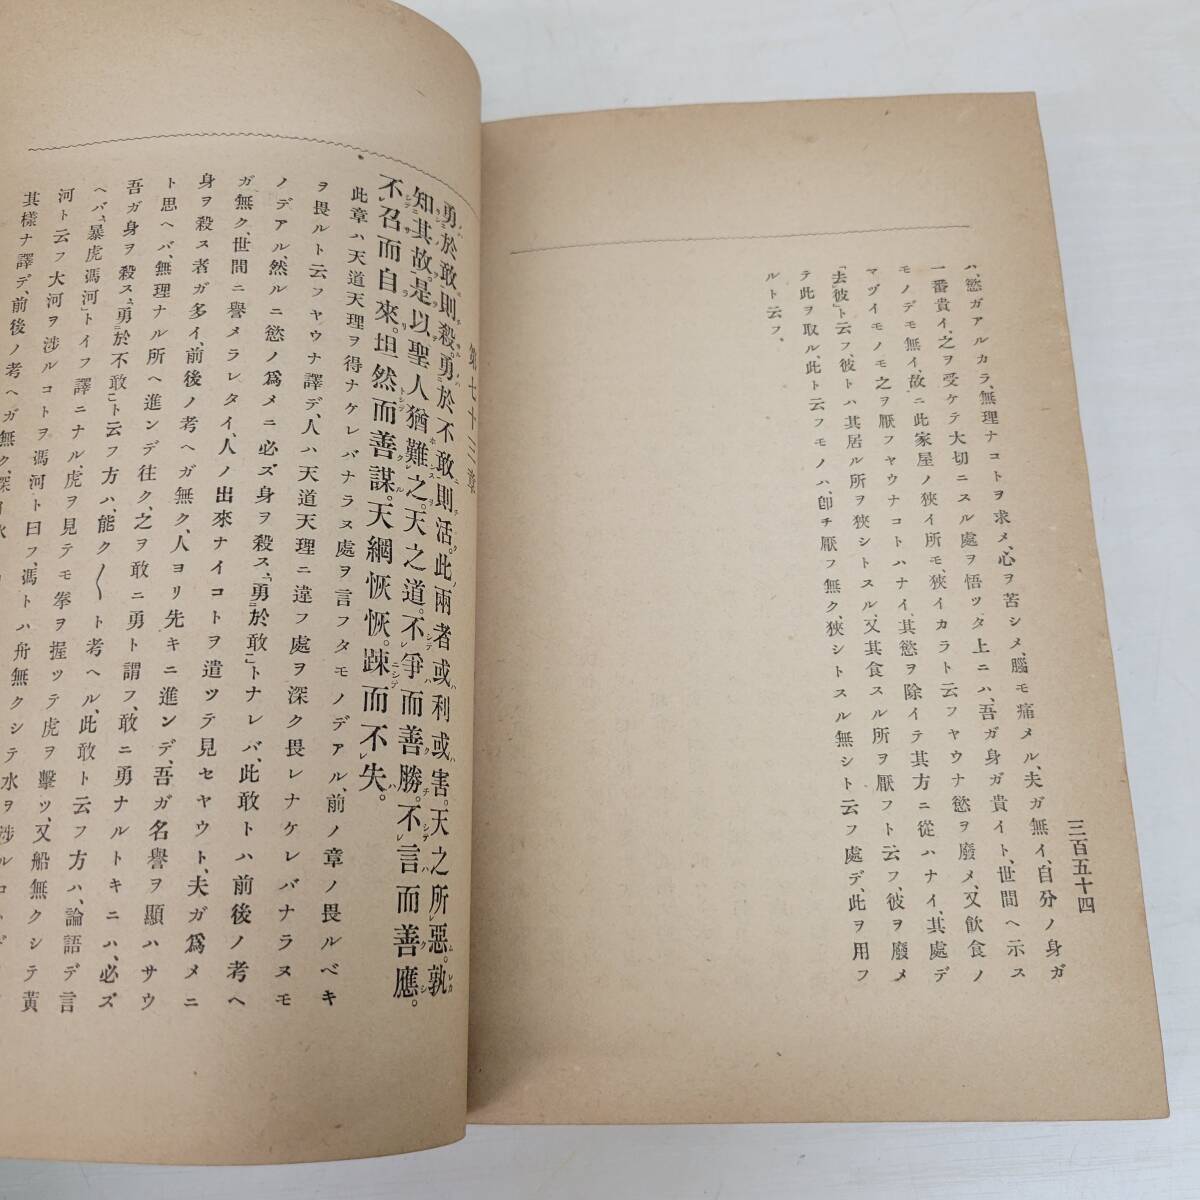 三百五十四
ハ、慾ガアルカラ、無理ナコトヲ求メ、心ヲ苦シメ、腦モ痛メル、夫ガ無イ、自分ノ身ガ
一番貴イ、之ヲ受ケテ大切ニスル處ヲ悟ツタ上ニハ、吾ガ身ガ貴イト、世間ヘ示ス
モノデモ無イ、故ニ此家屋ノ狹イ所モ、狹イカラト云フヤウナ慾ヲ廢メ、又飮食ノ
マヅイモノモ之ヲ厭フヤウナコトハナイ、其慾ヲ除イテ其方ニ從ハナイ、其處デ
「去彼」ト云フ、彼トハ其居ル所ヲ狹シトスル、又其食スル所ヲ厭フト云フ、彼ヲ廢メ
テ此ヲ取ル、此ト云フモノハ、卽チ厭フ無ク、狹シトスル無シト云フ處デ、此ヲ用フ
ルト云フ、
第七十三章
勇於敢則殺。勇於不敢則活。此兩者或利或害。天之所惡。孰
知其故。是以聖人猶難之。天之道。不爭而善勝。不言而善應。
不召而自來。坦然而善謀。天網恢恢。踈而不失。
此章ハ天道天理ヲ得ナケレバナラヌ處ヲ言フタモノデアル、前ノ章ノ畏ルベキ
ヲ畏ルト云フヤウナ譯デ、人ハ天道天理ニ違フ處ヲ深ク畏レナケレバナラヌモ
ノデアル、然ルニ慾ノ爲メニ必ズ身ヲ殺ス、「勇於敢」トナレバ、此敢トハ前後ノ考ヘ
ガ無ク、世間ニ譽メラレタイ、人ノ出來ナイコトヲ遣ツテ見セヤウト、夫ガ爲メニ
身ヲ殺ス者ガ多イ、前後ノ考ヘガ無ク、人ヨリ先キニ進ンデ、吾ガ名譽ヲ顯ハサウ
ト思ヘバ、無理ナル所ヘ進ンデ往ク、之ヲ敢ニ勇ト謂フ、敢ニ勇ナルトキニハ、必ズ
吾ガ身ヲ殺ス、「勇於不敢」ト云フ方ハ、能ク〳〵ト考ヘル、此敢ト云フ方ハ、論語デ言
ヘバ、「暴虎馮河」トイフ譯ニナル、虎ヲ見テモ拳ヲ握ツテ虎ヲ擊ツ、又船無クシテ黃
河ト云フ大河ヲ涉ルコトヲ馮河ト曰フ、馮トハ舟無クシテ水ヲ涉ルコト
其樣ナ譯デ、前後ノ考ヘガ無ク、深